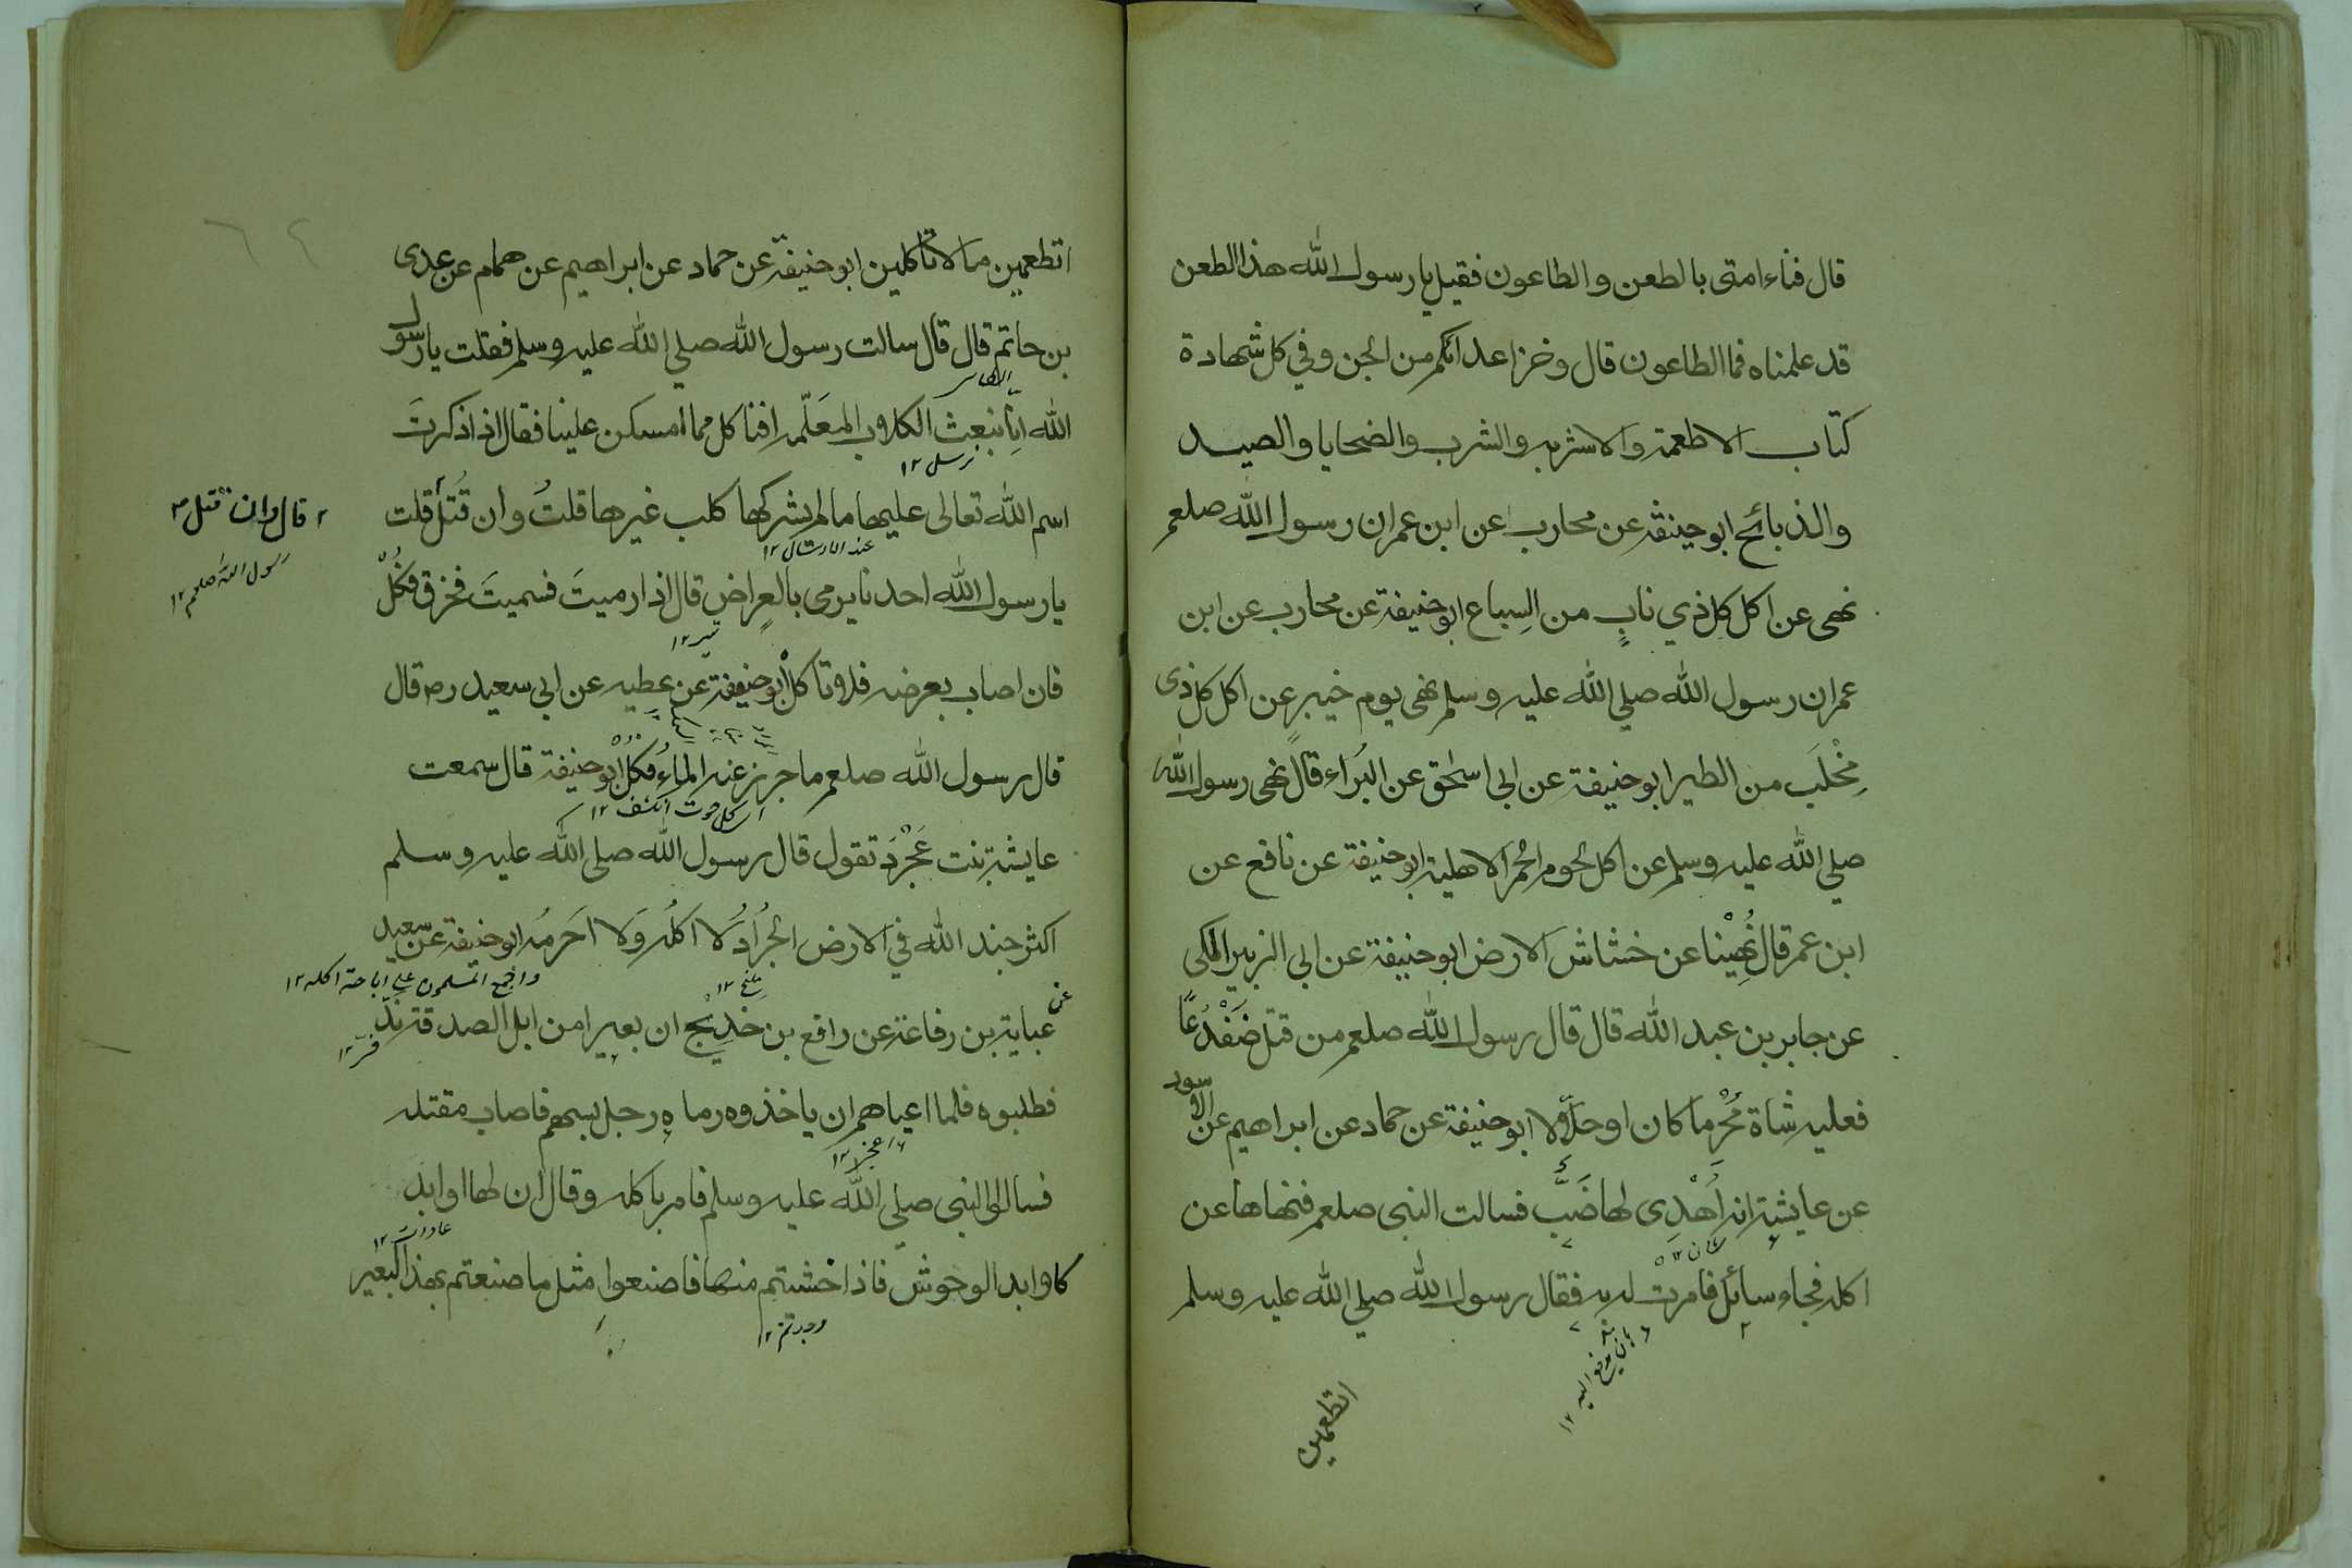 قال فناء امتى بالطعن والطاعون فقيل يا رسول الله هذا الطعن
قد علمناه فما الطاعون قال وخز اعدائكم من الجن وفي كل شهادة
كتاب الاطعمة والاشربه والشرب والضحايا والصيد
والذبائح ابو حنيفة عن محارب عن ابن عمر ان رسول الله صلعم
نهى عن اكل كل ذي نابٍ من السِباع ابو حنيفة عن محارب عن ابن
عمر ان رسول الله صلي الله عليه وسلم نهى يوم خيبر عن اكل كل ذى
مِخْلَب من الطير ابو حنيفة عن ابى اسحٰق عن البَراء قال نهى رسول الله
صلي الله عليه وسلم عن اكل لحوم الحمر الاهلية ابو حنيفة عن نافع عن
ابن عمر قال نُهِيْنا عن خشاش الارض ابو حنيفة عن ابى الزبير المكى
عن جابر بن عبد الله قال قال رسول الله صلعم من قتل ضَفْدَعًا
فعليه شاة مُحْرما كان او حلالا ابو حنيفة عن حماد عن ابراهيم عن الاسود
عن عايشة انه اُهْدِى لها ضَبّ فسالت النبى صلعم فنهاها عن
اكله فجاء سائل فامرت له به فقال رسول الله صلي الله عليه وسلم
اتطعمين
اتطعمين ما لا تاكلين ابو حنيفة عن حماد عن ابراهيم عن همام عن عدى
بن حاتم قال قال سالت رسول الله صلي الله عليه وسلم فقلت يا رسول
الله اِنّا نبعث الكلاب المعَلّمة افناكل مما امسكن علينا فقال اذا ذكرتَ
نرسل ١٢
اسم الله تعالى عليها ما لم يشركها كلب غيرها قلتُ وان قُتل قلت
٢ قال وان قتل
رسول الله صلعم ١٢
يا رسول الله احدنا يرمى بالمعِراض قال اذا رميتَ فسميتَ فخزق فكُلْ
تير ١٢
فان اصاب بعرضه فلا تاكلْ ابو حنيفة عن عطيه عن ابى سعيد رض قال
قال رسول الله صلعم ما جزر عنه الماءُ فكُلْ ابو حنيفة قال سمعت
عايشة بنت عَجْرَد تقول قال رسول الله صلى الله عليه وسلم
اكثر جند الله في الارض الجرُادُ لا اكلُه وَلا احَرمُه ابو حنيفة عن سعيد
واجمع المسلمون على اباحة اكله ١٢
عن عباية بن رفاعة عن رافع بن خديج ان بعيرا من ابل الصدقة ندّ
فرّ ١٢
فطلبوه فلما اعياهم ان ياخذوه رماه رجل بسهم فاصاب مقتله
فسالوا النبى صلي الله عليه وسلم فامر باكله وقال ان لها اوابد
كاوابد الوحوش فاذا خشيتم منها فاصنعوا مثل ما صنعتم بهذا البعير
وجدتم ١٢